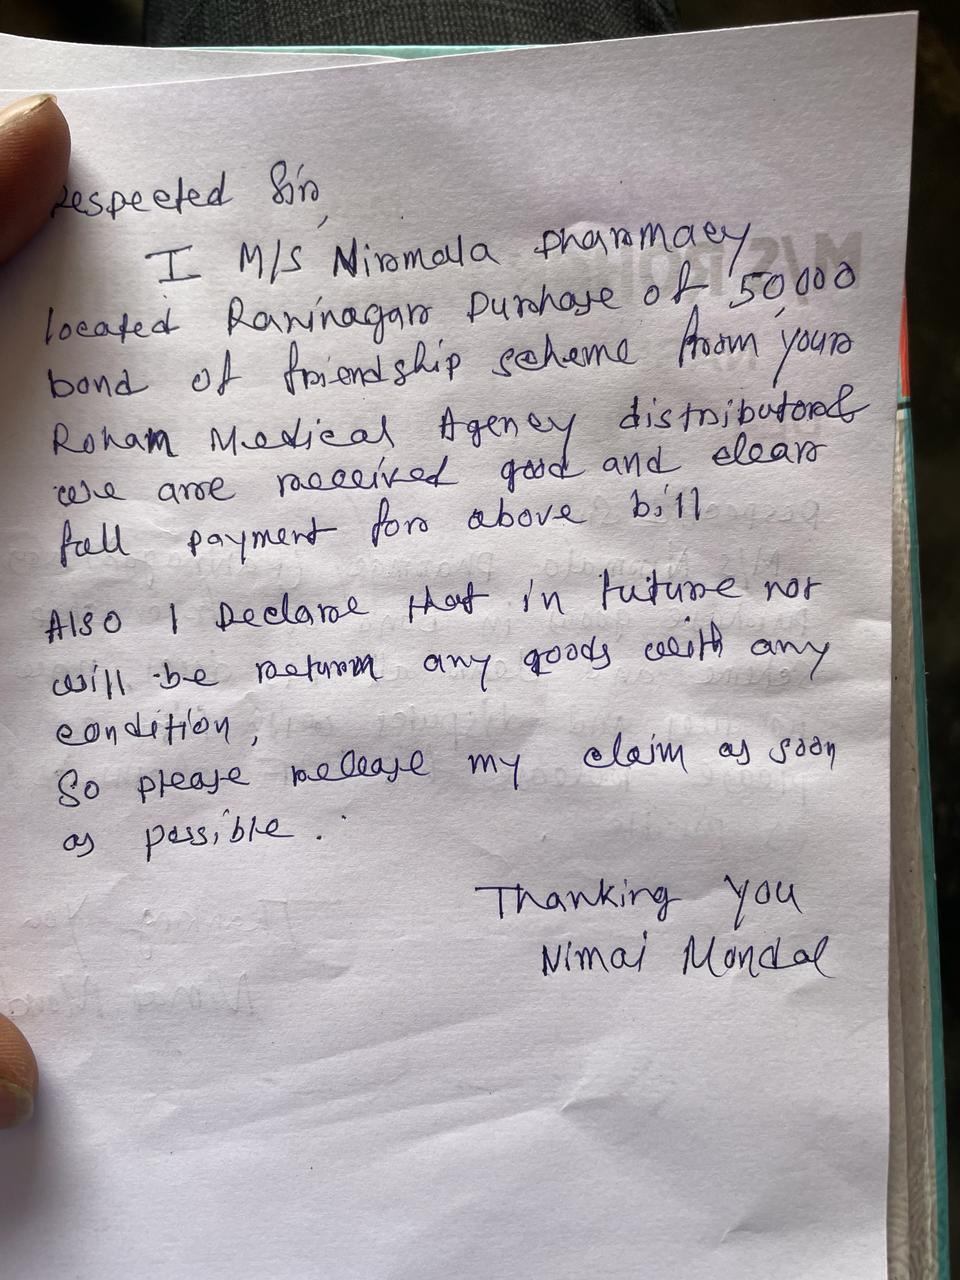 Respected Sir,
I M/S Nirmala pharmacy
located Raninagar purchase of 50,000
bond of friendship scheme from your
Roham Medical Agency distributor &
we are received good and clear
full payment for above bill
Also I Declare that in future not
will be return any goods with any
condition,
So please release my claim as soon
as possible.
Thanking You
Nimai Mondal